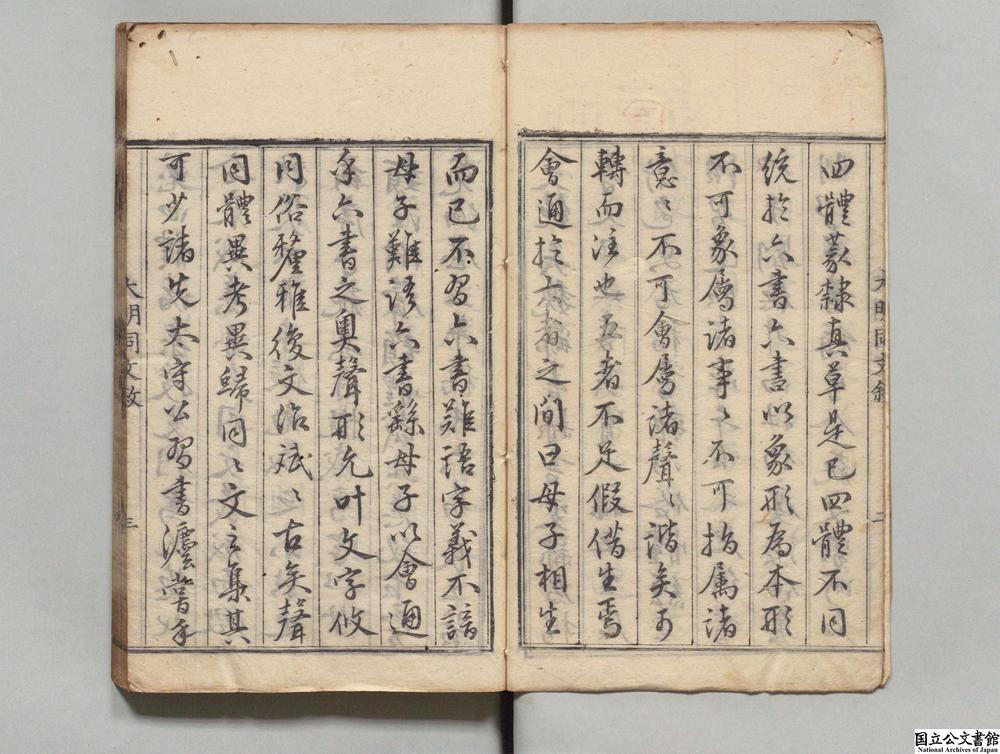 四體篆隸真草是已四體不同
統於六書六書以象形為本形
不可象屬諸事〻不可指屬諸
意〻不可會屬諸聲〻諧矣可
轉而注也五者不足假借生焉
會通於六者之間曰母子相生
而已不習六書難語字義不諳
母子難語六書繇母子以會通
乎六書之奧聲形允叶文字攸
同俗釐雅復文治斌〻古矣聲
同體異考異歸同〻文之集其
可少諸先太守公習書
大明同文敘
二
大明同文敘
三
国立公文書館
National Archives of Japan